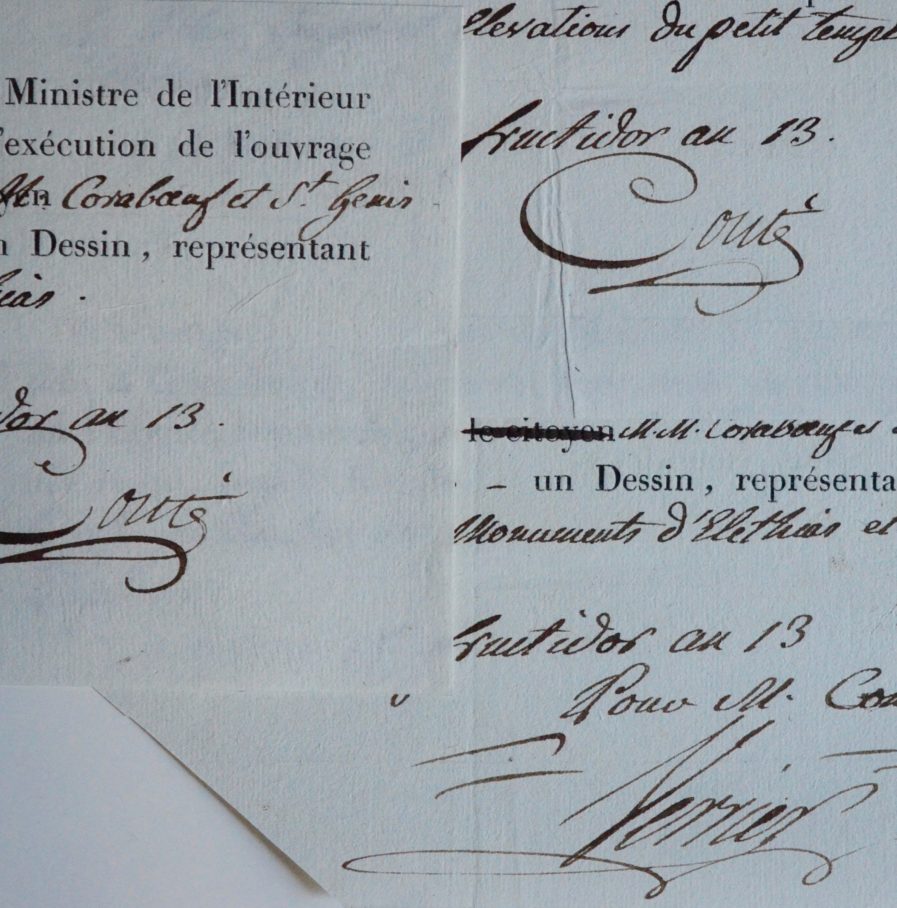 Ministre de l'Intérieur
l'exécution de l'ouvrage
Coraboeuf et St. Genis
un Dessin, représentant
hias.
dor au 13.
Conté
élevations du petit temple
fructidor au 13.
Conté
le citoyen M.M. Coraboeuf et
– un Dessin, représenta
Monuments d'Elethias et
fructidor an 13
Pour M. Con
Verrier